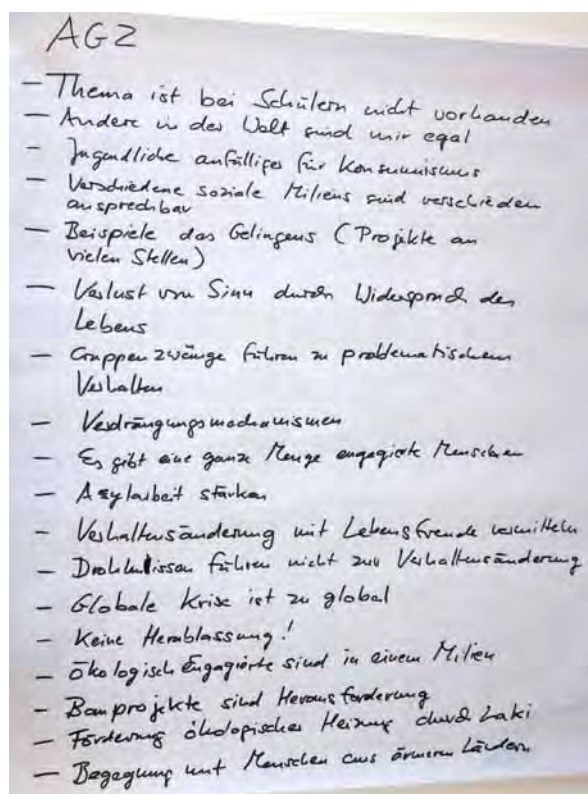 AG2
- Thema ist bei Schülern nicht vorhanden
- Andere in der Welt sind mir egal
- Jugendliche anfälliger für Konsumismus
- Verschiedene soziale Milieus sind verschieden
ansprechbar
- Beispiele des Gelingens (Projekte an
vielen Stellen)
- Verlust von Sinn durch Widerspruch des
Lebens
- Gruppenzwänge führen zu problematischem
Verhalten
- Verdrängungsmechanismen
- Es gibt eine ganze Menge engagierte Menschen
- Asylarbeit stärken
- Verhaltensänderung mit Lebensfreude vermitteln
- Drohkulissen führen nicht zur Verhaltensänderung
- Globale Krise ist zu global
- Keine Herablassung!
- Ökologisch Engagierte sind in einem Milieu
- Bauprojekte sind Herausforderung
- Förderung ökologischer Heizung durch Laki
- Begegnung mit Menschen aus ärmeren Ländern